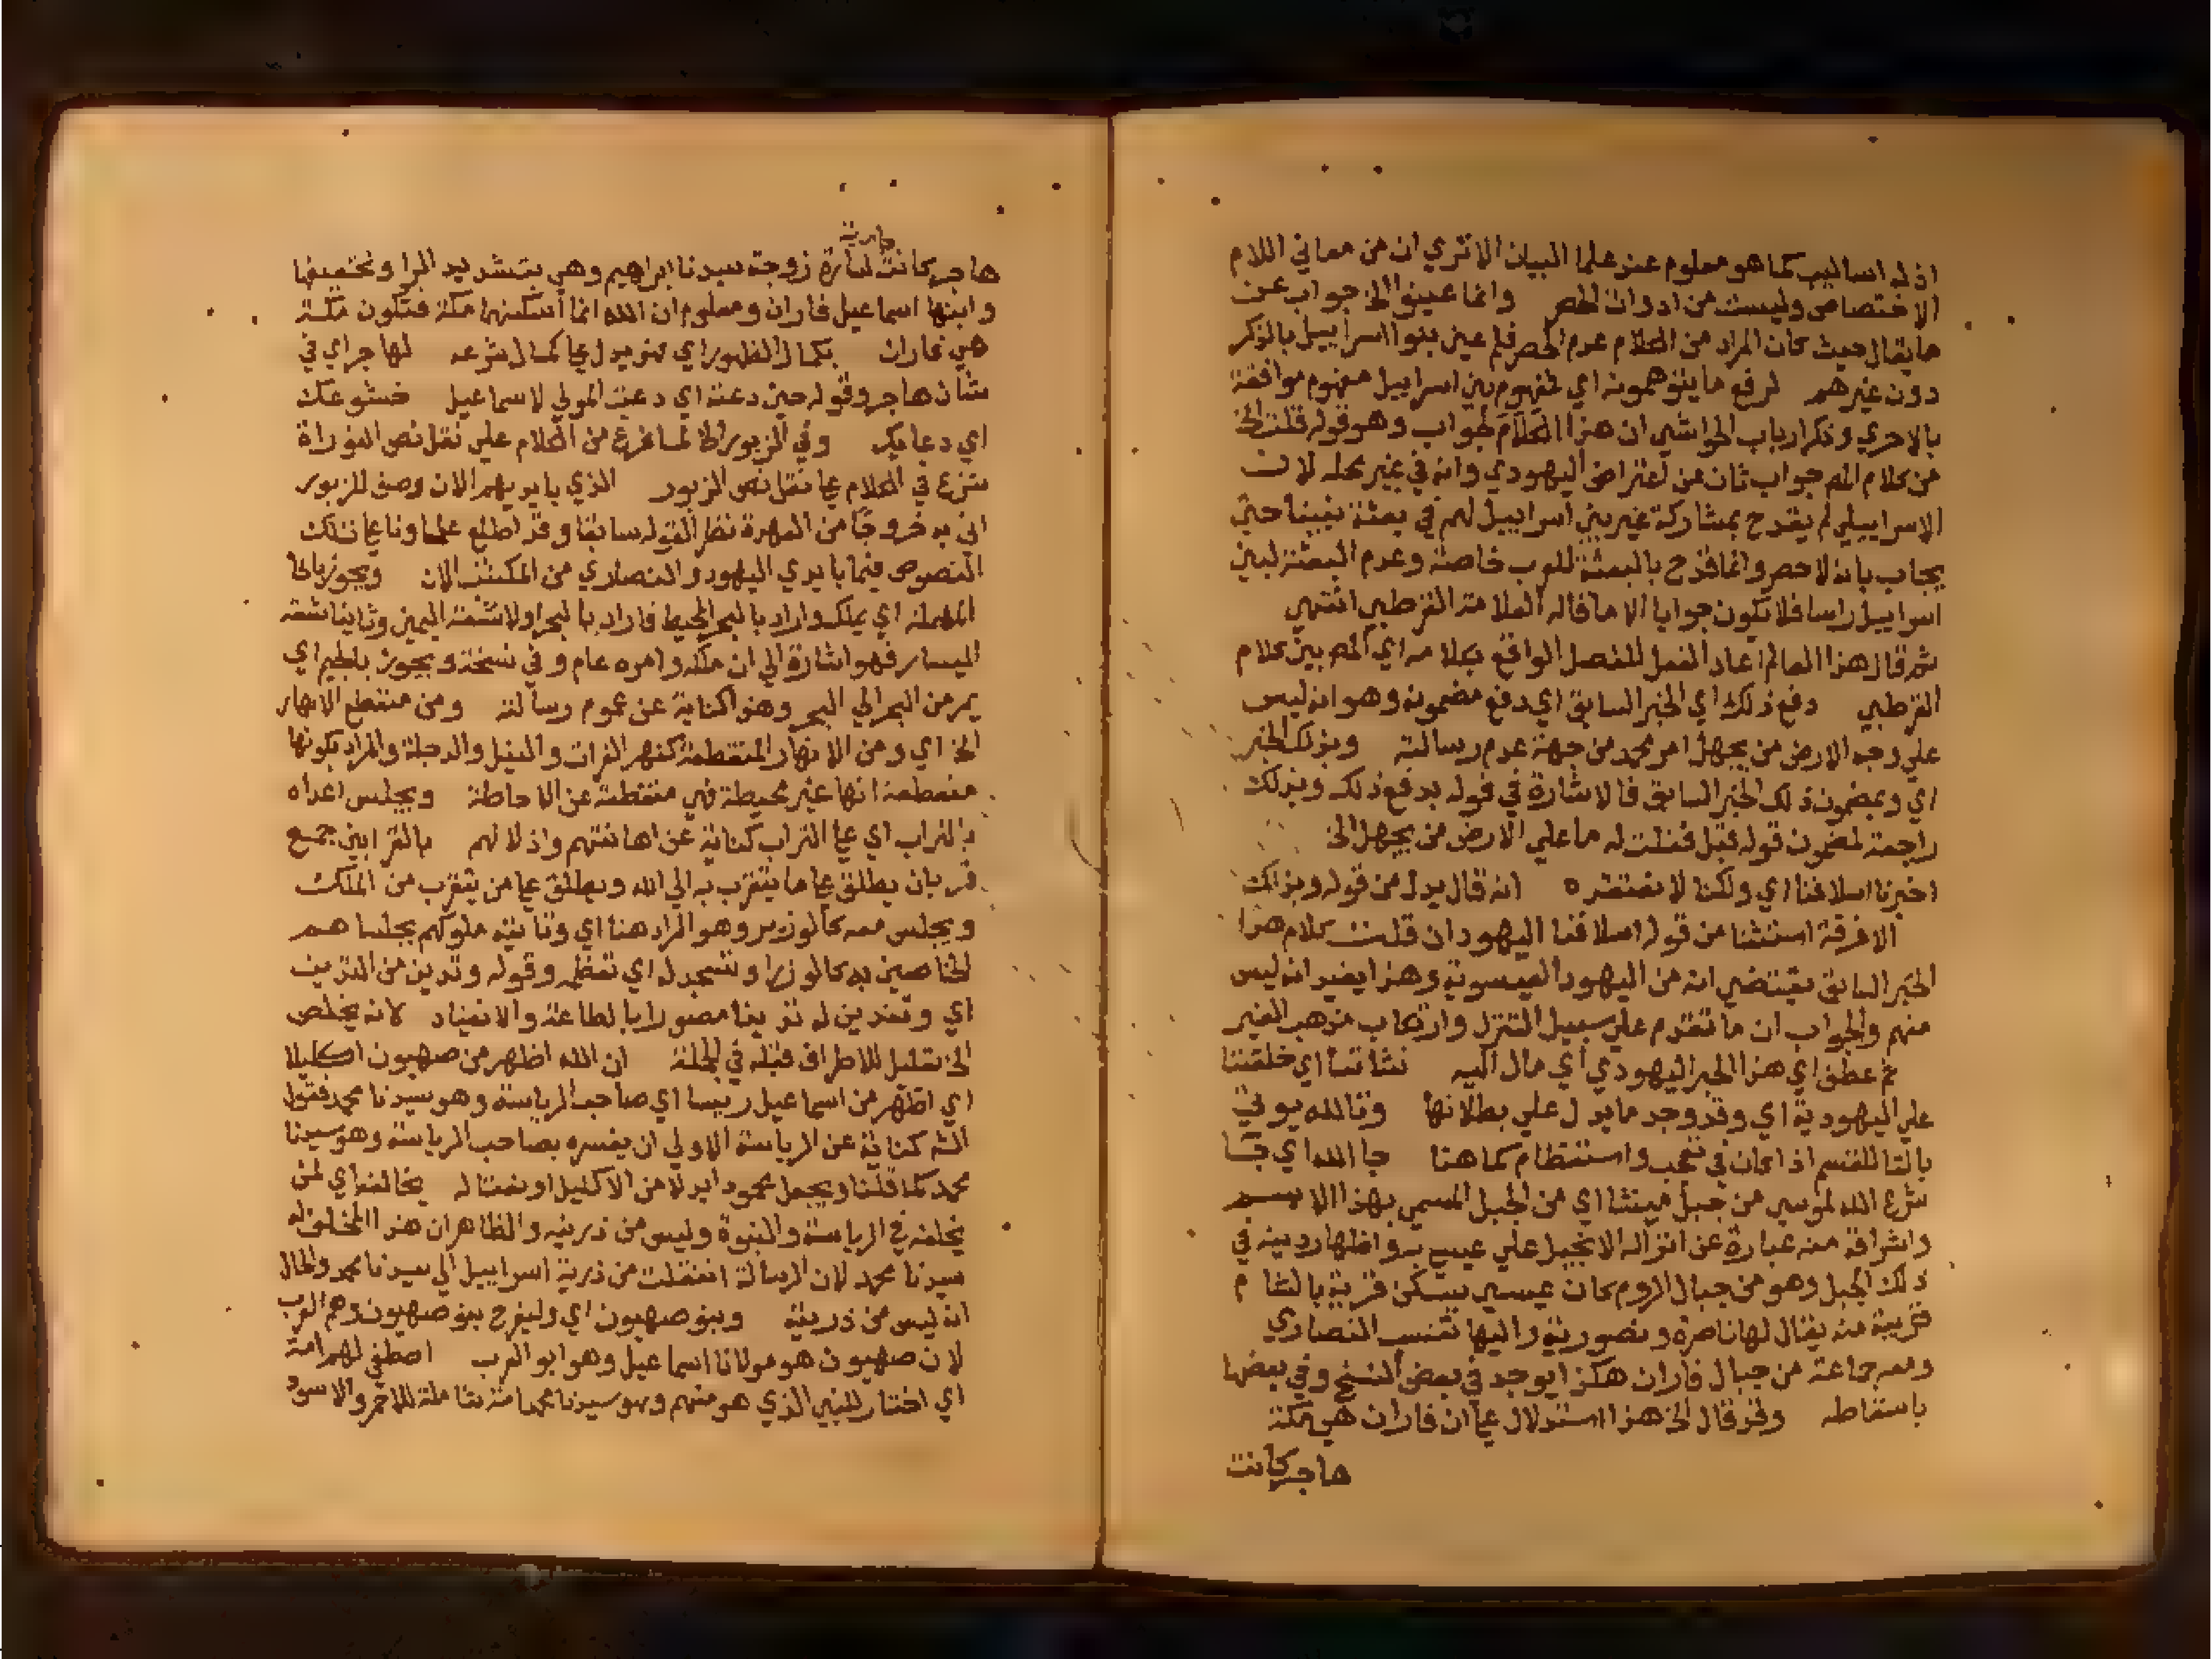 اذ له اساليب كما هو معلوم عند علما البيان الا تري ان من معاني اللام
الاختصاص وليست من ادوات الحصر وانما عينوا الخ جواب عن
ما يقال حيث كان المراد من الكلام عدم الحصر فلم عين بنوا اسراييل بالذكر
دون غيرهم لرفع ما يتوهمونه اي لمفهوم بني اسراييل مفهوم موافقة
بالاحري وذكر ارباب الحواشي ان هذا الكلام جواب وهو قوله قلت الخ
من كلام المص جواب ثان عن اعتراض اليهودي وانه في غير محله لان
الاسراييلي لم يقدح بمشاركة غير بني اسراييل لهم في بعثة نبينا حتي
يجاب بانه لا حصر وانما قدح بالبعثة للعرب خاصة وعدم البعثة لبني
اسراييل راسا فلا تكون جوابا الا ما قاله العلامة القرطبي انتهي
ثم قال هذا العالم اعاد الفعل للفصل الواقع بكلامه اي المص بين كلام
القرطبي دفع ذلك اي الخبر السابق اي دفع مضمونه وهو انه ليس
علي وجه الارض من يجهل امر محمد من جهة عدم رسالته وبذلك الخبر
اي وبمضمون ذلك الخبر السابق فالاشارة في قوله يدفع ذلك وبذلك
راجعة لمضمون قوله قبل فقلت له ما علي الارض من يجهل الخ
اخبرنا اسلافنا اي ولكنا لا نعتقده انه قال بدل من قوله وبذلك
الا فرقة استثنا من قوله اسلافنا اليهود ان قلت كلام هذا
الخبر السابق يقتضي انه من اليهود العيسوية وهذا يفيد انه ليس
منهم والجواب ان ما تقدم علي سبيل التنزل وارتكاب مذهب الغير
ثم عطف اي هذا الحبر اليهودي اي مال اليه نشاتنا اي خلقتنا
علي اليهودية اي وقد وجد ما يدل علي بطلانها وتالله يوتي
بالتا للقسم اذا كان في تعجب واستعظام كما هنا جا الله اي جا
شرع الله لموسي من جبل سينا اي من الجبل المسمي بهذا الاسم
واشراقه منه عبارة عن انزاله الانجيل علي عيسي به واظهار دينه في
ذلك الجبل وهو من جبال الروم كان عيسي يسكن قرية بالشام
قريبة منه يقال لها ناصرة ونصورية واليها تنسب النصاري
ومعه جماعة من جبال فاران هكذا يوجد في بعض النسخ وفي بعضها
باسقاطه وقد قال الخ هذا استدلال علي ان فاران هي مكة
هاجر كانت
جارية
هاجر كانت لسارة زوجة سيدنا ابراهيم وهي بتشديد الرا وتخفيفها
وابنها اسماعيل فاران ومعلوم ان الله انما اسكنهما مكة فتكون مكة
هي فاران بكمال الظهور اي فهو يدل علي كمال شرعه لها جر اي في
شان هاجر وقوله حين دعته اي دعت المولي لاسماعيل خشوعك
اي دعايك وفي الزبور الخ لما فرغ من الكلام علي نقل نص التوراة
شرع في الكلام علي نقل نص الزبور الذي بايديهم الان وصف للزبور
اتي به خروجا من العهدة نظرا لقوله سابقا وقد اطلع علماونا علي تلك
النصوص فيما بايدي اليهود والنصاري من الكتب الان ويجوز بالحا
المهملة اي يملك واراد بالبحر المحيط فاراد بالبحر اولا شقه اليمين وثانيا شقه
اليسار فهو اشارة الي ان ملكه وامره عام وفي نسخة ويجوز بالجيم اي
يمر من البحر الي البحر وهو كناية عن عموم رسالته ومن منقطع الانهار
الخ اي ومن الانهار المنقطعة كنهر الفرات والنيل والدجلة والمراد بكونها
منقطعة انها غير محيطة فهي منقطعة عن الاحاطة ويجلس اعداه
بالتراب اي علي التراب كناية عن اهانتهم واذلالهم بالقرابين جمع
قربان يطلق علي ما يتقرب به الي الله ويطلق علي من يتقرب من الملك
ويجلس معه كالوزير وهو المراد هنا اي وتاتيه ملوكهم بجلسايهم
الخاصين به كالوزرا وتسجد له اي تعظمه وقوله وتدين من التدين
اي وتتدين له تدينا مصورا بالطاعة والانقياد لانه يخلص
الخ تعليل للاطراف قبله في الجملة ان الله اظهر من صهيون اكليلا
اي اظهر من اسماعيل رييسا اي صاحب الرياسة وهو سيدنا محمد فقول
الش كناية عن الرياسة الاولي ان يفسره بصاحب الرياسة وهو سيدنا
محمد كما قلنا ويجعل محمودا بدلا من الاكليل او نعتا له يخالفه اي لمن
يخلفه في الرياسة والنبوة وليس من ذريته والظاهر ان هذا المخلف له
سيدنا محمد لان الرسالة انتقلت من ذرية اسراييل الي سيدنا محمد والحال
انه ليس من ذريته وبنو صهيون اي وليفرح بنو صهيون وهم العرب
لان صهيون هو مولانا اسماعيل وهو ابو العرب اصطفي لهم امة
اي اختار للنبي الذي هو منهم وهو سيدنا محمد امة شاملة للاحمر والاسود